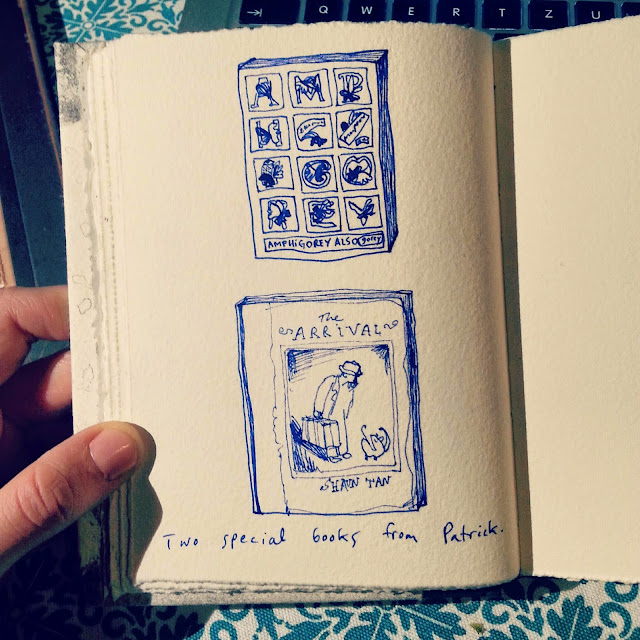 Q W E R T Z U
A M P
AMPHIGOREY ALSO gorey
The
ARRIVAL
SHAUN TAN
Two special books from Patrick.